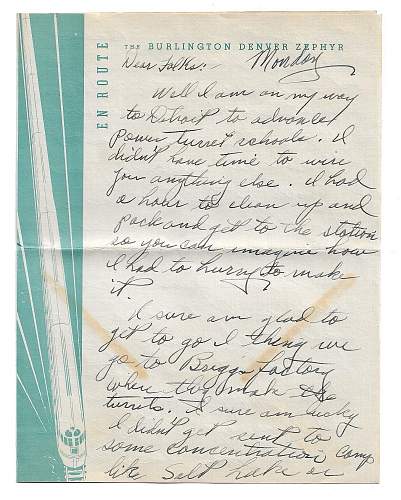 EN ROUTE
THE BURLINGTON DENVER ZEPHYR
Dear Folks: Monday
Well I am on my way
to Detroit to advance
power turret schools. I
didn't have time to wire
you anything else. I had
a hour to clean up and
pack and get to the station
so you can imagine how
I had to hurry to make
it.
I sure am glad to
get to go I think we
go to Briggs factory
where they make the
turrets. I sure am lucky
I didn't get sent to
some concentration camp
like Salt Lake or